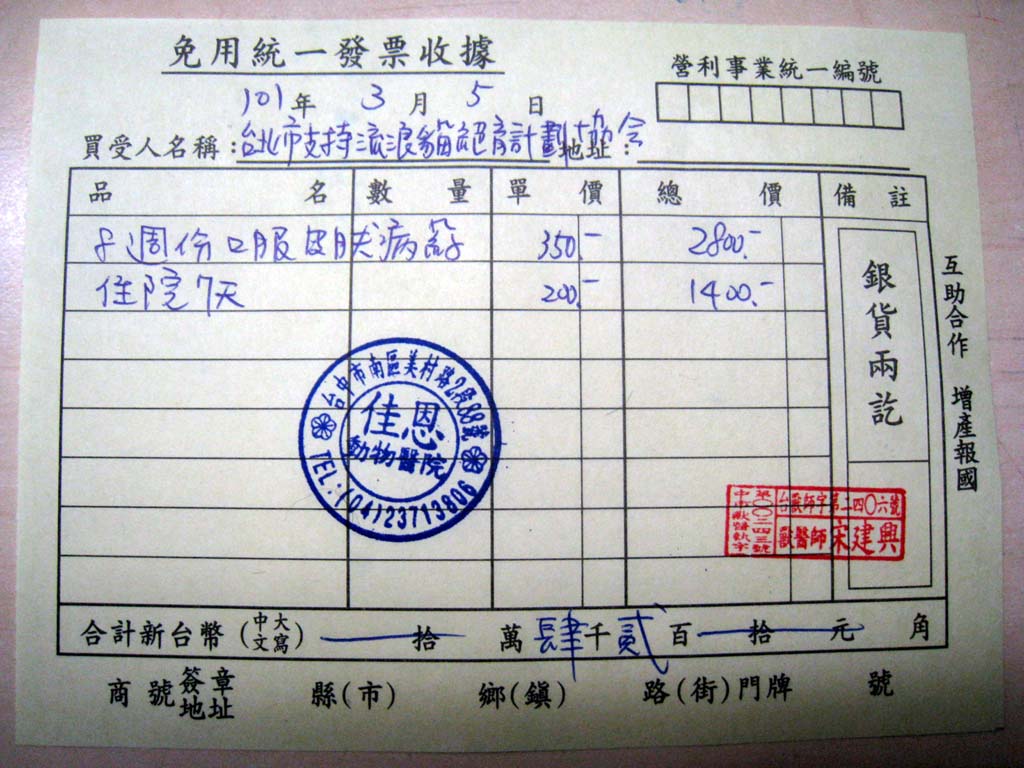 免用統一發票收據
營利事業統一編號
101年 3月 5日
買受人名稱：台北市支持流浪貓絕育計劃協會 地址：
品名 數量 單價 總價 備註
8週份口服皮膚病藥 350.- 2800.-
住院7天 200.- 1400.-
銀貨兩訖
互助合作 增產報國
台中市南區美村路2段88號
佳恩
動物醫院
TEL:(04)23713806
台獸師字第二四〇六號
獸醫師 宋建興
中市獸醫執字
第〇〇二四三號
合計新台幣(中文大寫) 拾 萬 肆 千 貳 百 拾 元 角
商號簽章地址 縣(市) 鄉(鎮) 路(街)門牌 號